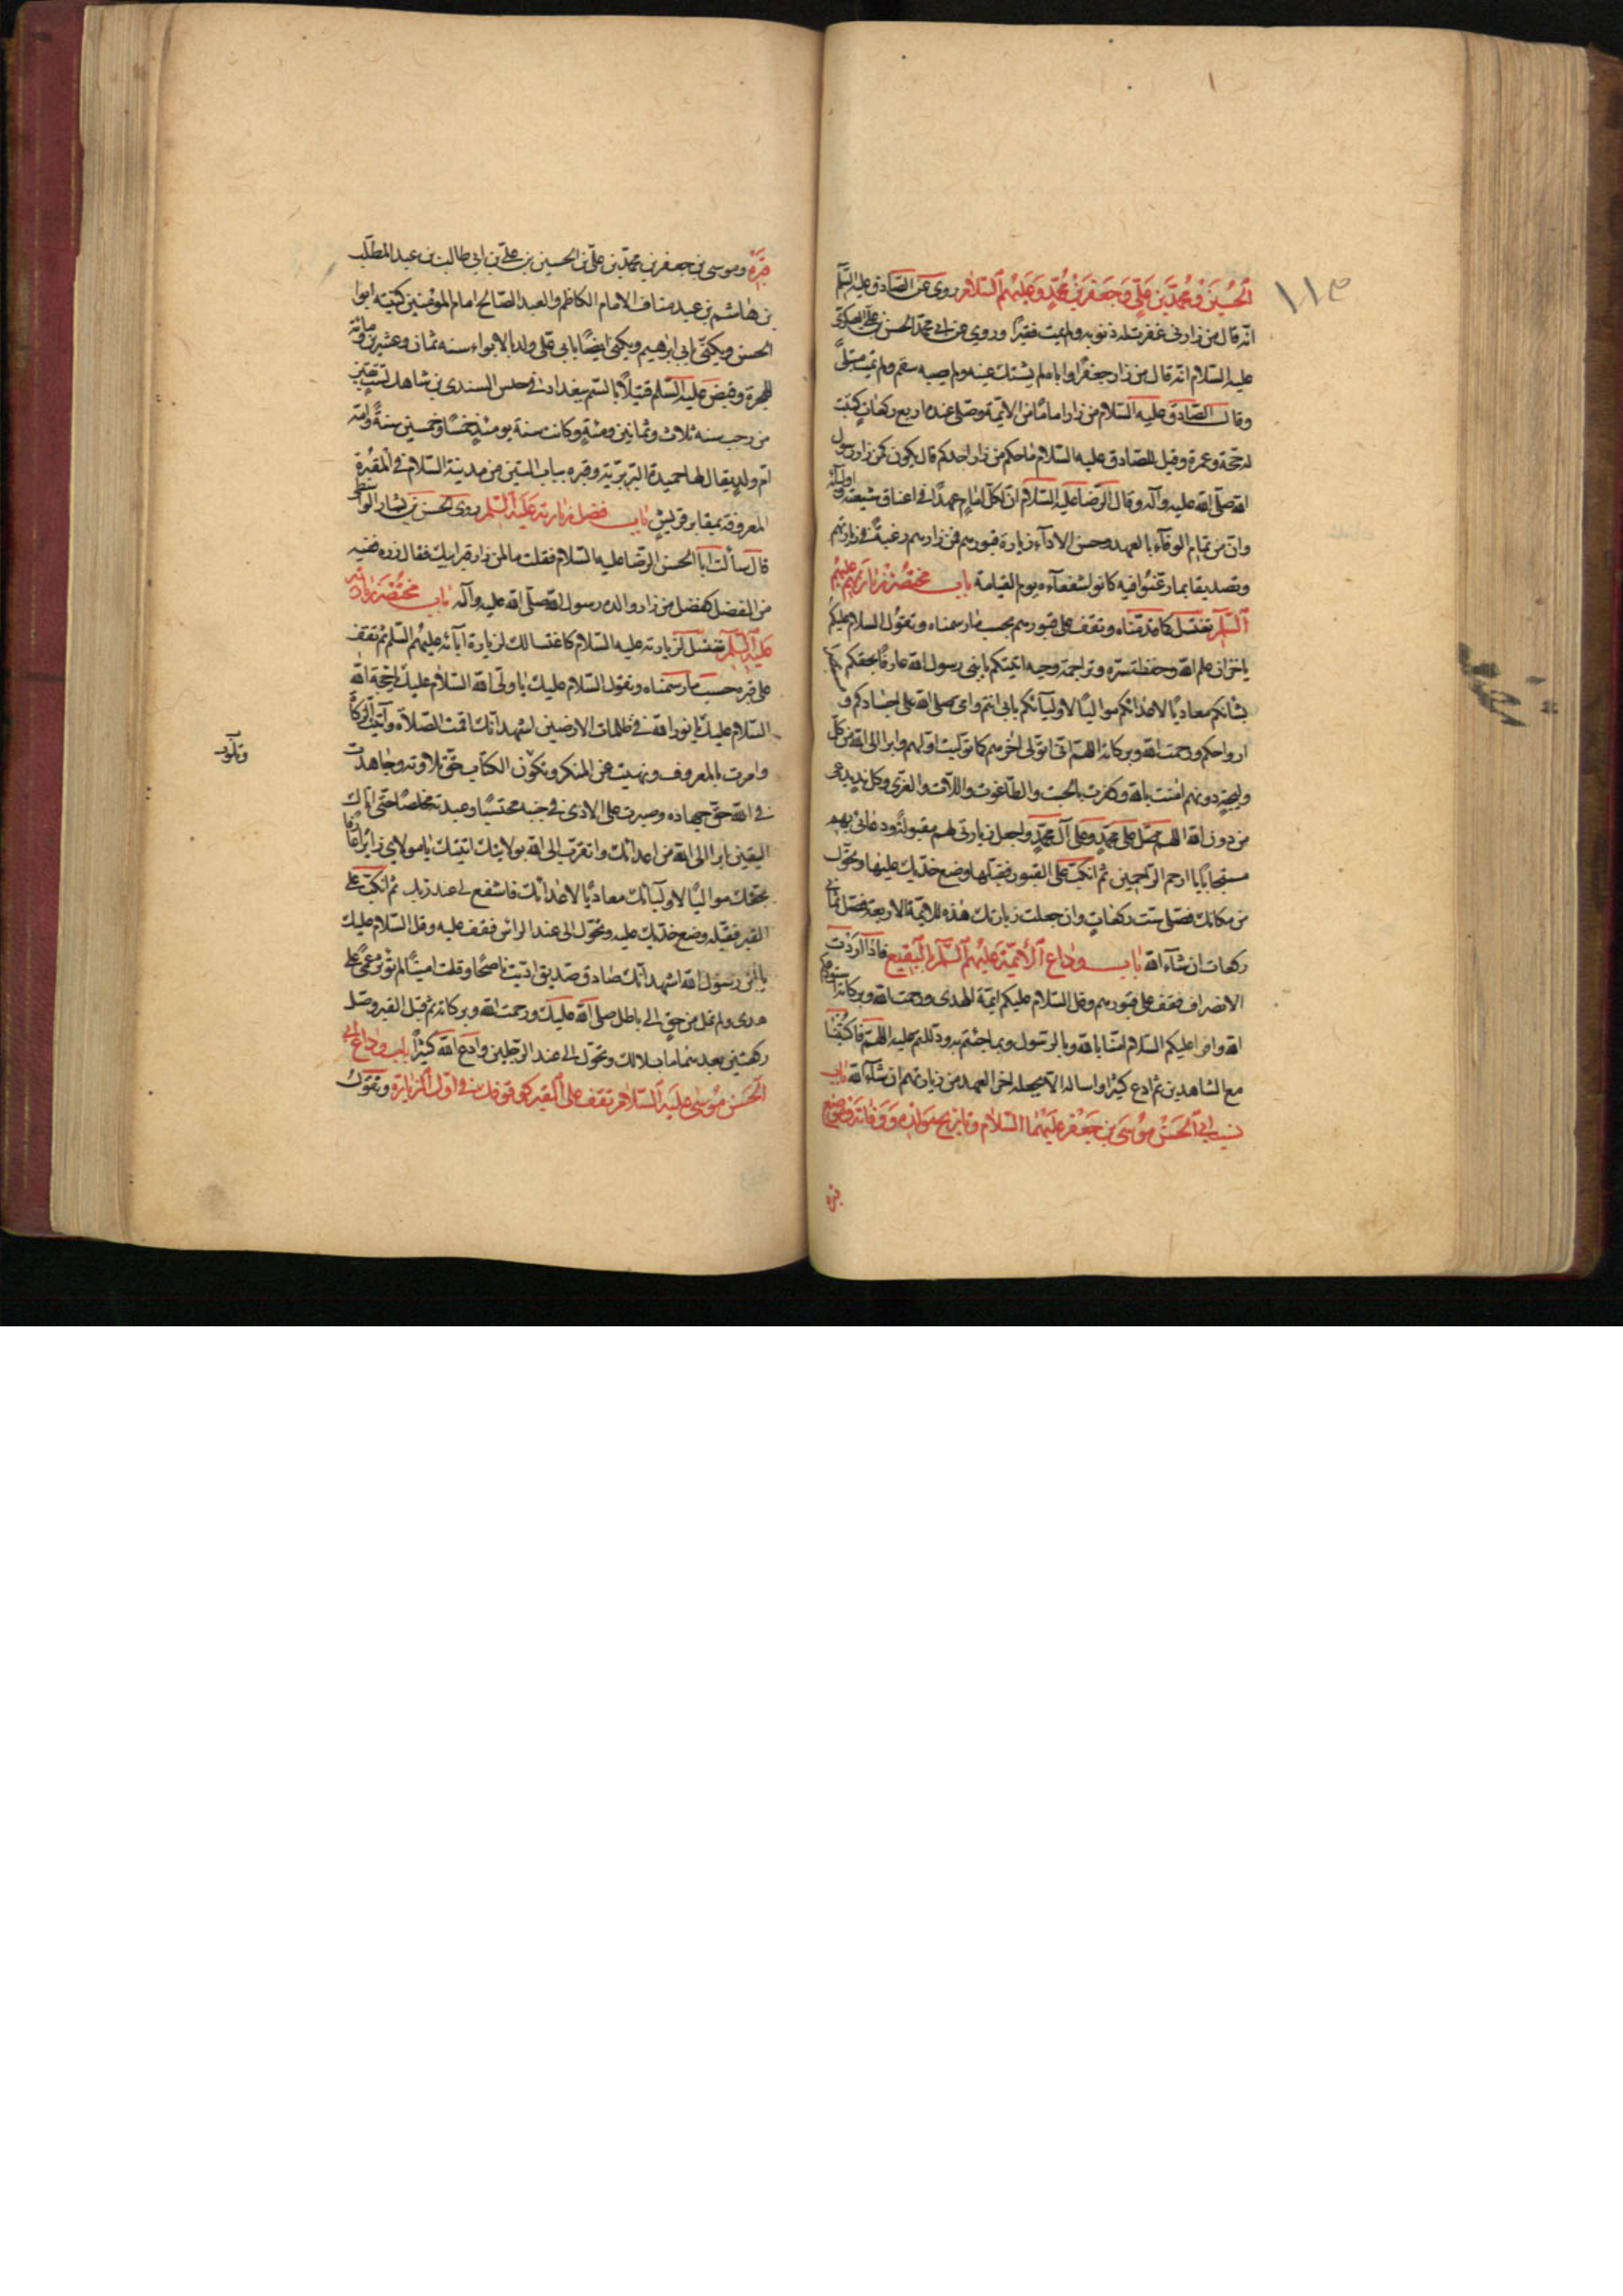 الحسين ومحمد بن علي وجعفر بن محمد وعليهم السلام روى عن الصادق عليه السلم
انه قال من زارني غفرت له ذنوبه ولم يمت فقيرا وروي عن ابي محمد الحسن بن علي العسكري
عليه السلام انه قال من زار جعفرا واباه لم يشتك عينه ولم يصبه سقم ولم يمت مبتلى
وقال الصادق عليه السلام من زار اماما من الائمة وصلى عنده اربع ركعات كتبت
له حجة وعمرة وقيل للصادق عليه السلام ما حكم من زار احدكم قال يكون كمن زار رسول
الله صلى الله عليه وآله وقال الرضا عليه السلام ان لكل امام عهدا في اعناق شيعته واوليائه
وان من تمام الوفاء بالعهد وحسن الاداء زيارة قبورهم فمن زارهم رغبة في زيارتهم
وتصديقا بما رغبوا فيه كانوا شفعاءه يوم القيامة باب مختصر زيارتهم عليهم
السلم تغتسل كما قدمناه وتقف على قبورهم بحسب ما رسمناه وتقول السلام عليكم
يا خزان علم الله وحفظة سره وتراجمة وحيه اتيتكم يا بني رسول الله عارفا بحقكم
بشانكم معاديا لاعدائكم مواليا لاوليائكم بابي انتم وامي صلى الله على اجسادكم و
ارواحكم ورحمت الله وبركاته اللهم اني اتولى اخرهم كما توليت اولهم وابرا الى الله من كل
وليجة دونهم امنت بالله وكفرت بالجبت والطاغوت واللات والعزى وكل نديد عى
من دون الله اللهم صل على محمد وعلى آل محمد واجعل زيارتي لهم مقبولة ودعائي بهم
مستجابا يا ارحم الراحمين ثم انكب على القبور فقبلها وضع خديك عليها وتحول
من مكانك فصل ست ركعات وان جعلت زيارتك هذه للائمة الاربعة فصل ثماني
ركعات ان شاء الله باب وداع الائمة عليهم السلم بالبقيع فاذا اردت
الانصراف فقف على قبورهم وقل السلام عليكم ائمة الهدى ورحمت الله وبركاته استودعكم
الله واقرا عليكم السلام امنا بالله وبالرسول وبما جئتم به ودللتم عليه اللهم فاكتبنا
مع الشاهدين ثم ادع كثيرا واساله الا يجعله اخر العهد من زيارتهم ان شاء الله باب
نسب ابي الحسن موسى بن جعفر عليهما السلام وتاريخ مولده ووفاته وموضع
قبره
قبره وموسى بن جعفر بن محمد بن علي بن الحسين بن علي بن ابي طالب بن عبد المطلب
بن هاشم بن عبد مناف الامام الكاظم والعبد الصالح امام المؤمنين كنيته ابوا
الحسن ويكنى بابي ابرهيم ويكنى ايضا بابي علي ولد بالابواء سنه ثمان وعشرين ومائة
للهجرة وقبض عليه السلم قتيلا بالسم ببغداد في حبس السندي بن شاهك لست بقين
من رجب سنه ثلاث وثمانين ومئة وكانت سنة يومئذ خمسا وخمسين سنة وامه
ام ولد يقال لها حميدة البربرية وقبره بباب التين من مدينة السلام في المقبرة
المعروفة بمقابر قريش باب فضل زيارته عليه السلم روى الحسن بن بشار الواسطي
قال سألت ابا الحسن الرضا عليه السلام فقلت ما لمن زار قبر ابيك فقال زره ففيه
من الفضل كفضل من زار والده رسول الله صلى الله عليه وآله باب مختصر زيارته
عليه السلم تغتسل لزيارته عليه السلام كاغتسالك لزيارة آبائه عليهم السلم ثم تقف
على قبره حسب ما رسمناه وتقول السلام عليك يا ولي الله السلام عليك يا حجة الله
السلام عليك يا نور الله في ظلمات الارضين اشهد انك اقمت الصلاة وآتيت الزكاة
وامرت بالمعروف ونهيت عن المنكر وتكون الكتاب حق تلاوته وجاهدت
وتلوت
في الله حق جهاده وصبرت على الاذى في جنبه محتسبا وعبدته مخلصا حتى اتاك
اليقين ابرا الى الله من اعدائك واتقرب الى الله بولايتك اتيتك يا مولاي زائرا عارفا
بحقك مواليا لاوليائك معاديا لاعدائك فاشفع لي عند ربك ثم انكب على
القبر فقبله وضع خديك عليه وتحول الى عند الراس فقف عليه وقل السلام عليك
يا ابن رسول الله اشهد انك صادق صديق اديت ناصحا وقلت امينا لم تؤثر عمى على
هدى ولم تمل من حق الى باطل صلى الله عليك ورحمت الله وبركاته ثم قبل القبر وصل
ركعتين بعدهما ما بدا لك وتحول الى عند الرجلين وادع الله كثيرا باب وداع ابي
الحسن موسى عليه السلام تقف على القبر كوقوفك في اول الزيارة وتقول